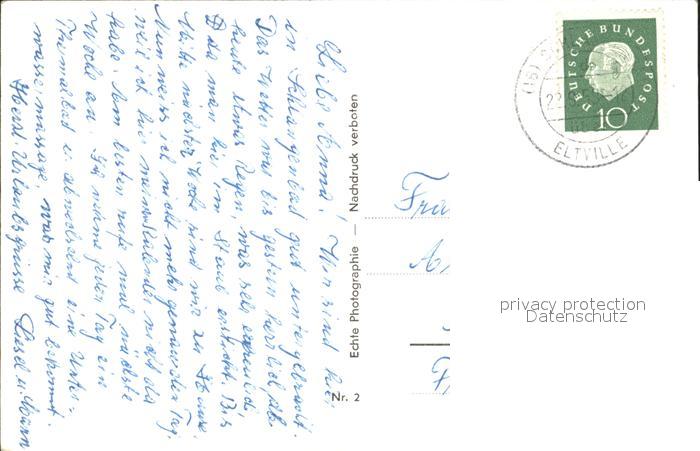 Liebe Anna! Wir sind hier
in Schlangenbad gut untergebracht.
Das Wetter war bis gestern herrlich, ab
heute etwas Regen, was sehr
Da man hier im Staub erstickt. Bis
Mitte nächster Woche sind wir zu Hause.
Nun weiss ich nicht mehr genauen Tag,
weil ich hier meinen Kalender nicht da
habe. Am besten rufe mal nächste
Woche an. Ich nehme jeden Tag ein
Thermalbad u. abwechselnd eine Unter-
wassermassage, was mir gut bekommt.
Herzl. Urlaubsgrüsse Liesel u. Mann
Echte Photographie — Nachdruck verboten
Nr. 2
Fra
A
F
DEUTSCHE BUNDESPOST
10
(16)
22
ELTVILLE
privacy protection
Datenschutz